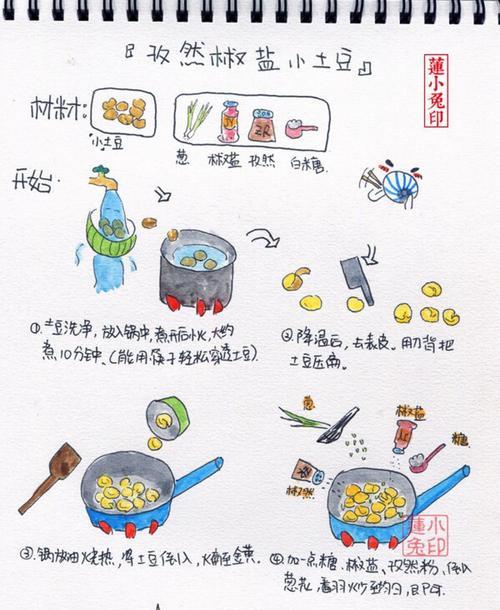 『孜然椒盐小土豆』
蓮小兔印
材料:
小土豆
葱 椒盐 孜然 白糖
开始:
①.土豆洗净,放入锅中,煮开后小火,大约
煮10分钟。(能用筷子轻松穿透土豆).
②降温后,去表皮。用刀背把
土豆压扁。
葱
椒盐
糖
孜然
③.锅放油烧热,将土豆倒入,煎至金黄。
④.加一点糖、椒盐、孜然粉,倒入
葱花,翻炒至均匀,即可.
蓮小兔印